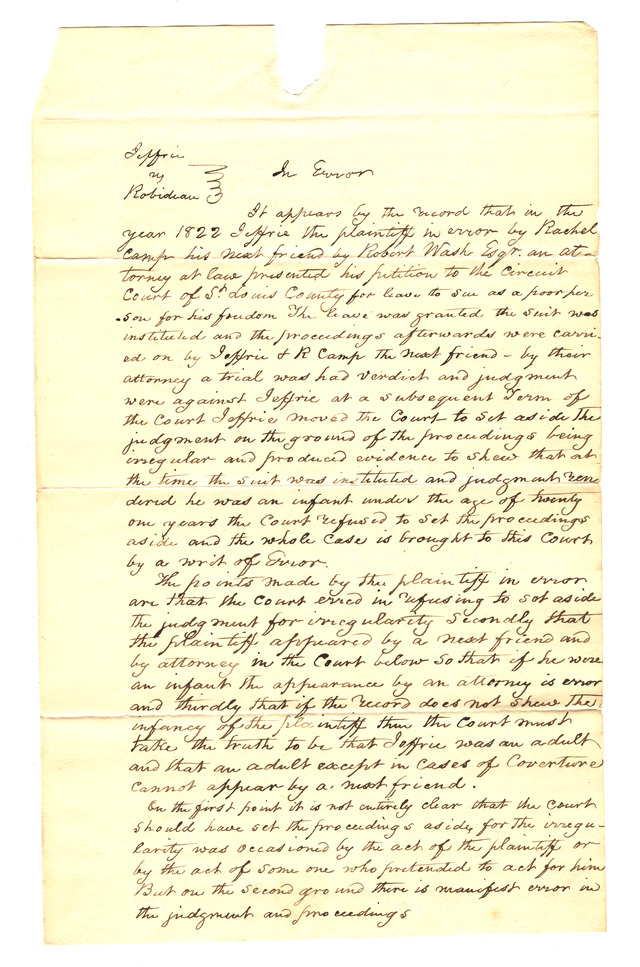 Jeffrie
vs
Robideau
In Error
It appears by the record that in the
year 1822 Jeffrie the plaintiff in error by Rachel
Camp his next friend by Robert Wash Esqr. an at-
torney at law presented his petition to the Circuit
Court of St. Louis County for leave to sue as a poor per
-son for his freedom The leave was granted the suit was
instituted and the proceedings afterwards were carri-
ed on by Jeffrie & R Camp the next friend - by their
attorney a trial was had verdict and judgment
were against Jeffrie at a subsequent Term of
the Court Jeffrie moved the Court to set aside the
judgment on the ground of the proceedings being
irregular and produced evidence to shew that at
the time the suit was instituted and judgment ren
dered he was an infant under the age of twenty
one years the Court refused to set the proceedings
aside and the whole case is brought to this Court
by a writ of Error.
The points made by the plaintiff in error
are that the Court erred in refusing to set aside
the judgment for irregularity Secondly that
the plaintiff appeared by a next friend and
by attorney in the Court below so that if he were
an infant the appearance by an attorney is error
and thirdly that if the record does not shew the
infancy of the plaintiff then the Court must
take the truth to be that Jeffrie was an adult
and that an adult except in cases of Coverture
cannot appear by a next friend.
On the first point it is not entirely clear that the court
should have set the proceedings aside, for the irregu-
larity was occasioned by the act of the plaintiff or
by the act of some one who pretended to act for him
But on the second ground there is manifest error in
the judgment and proceedings